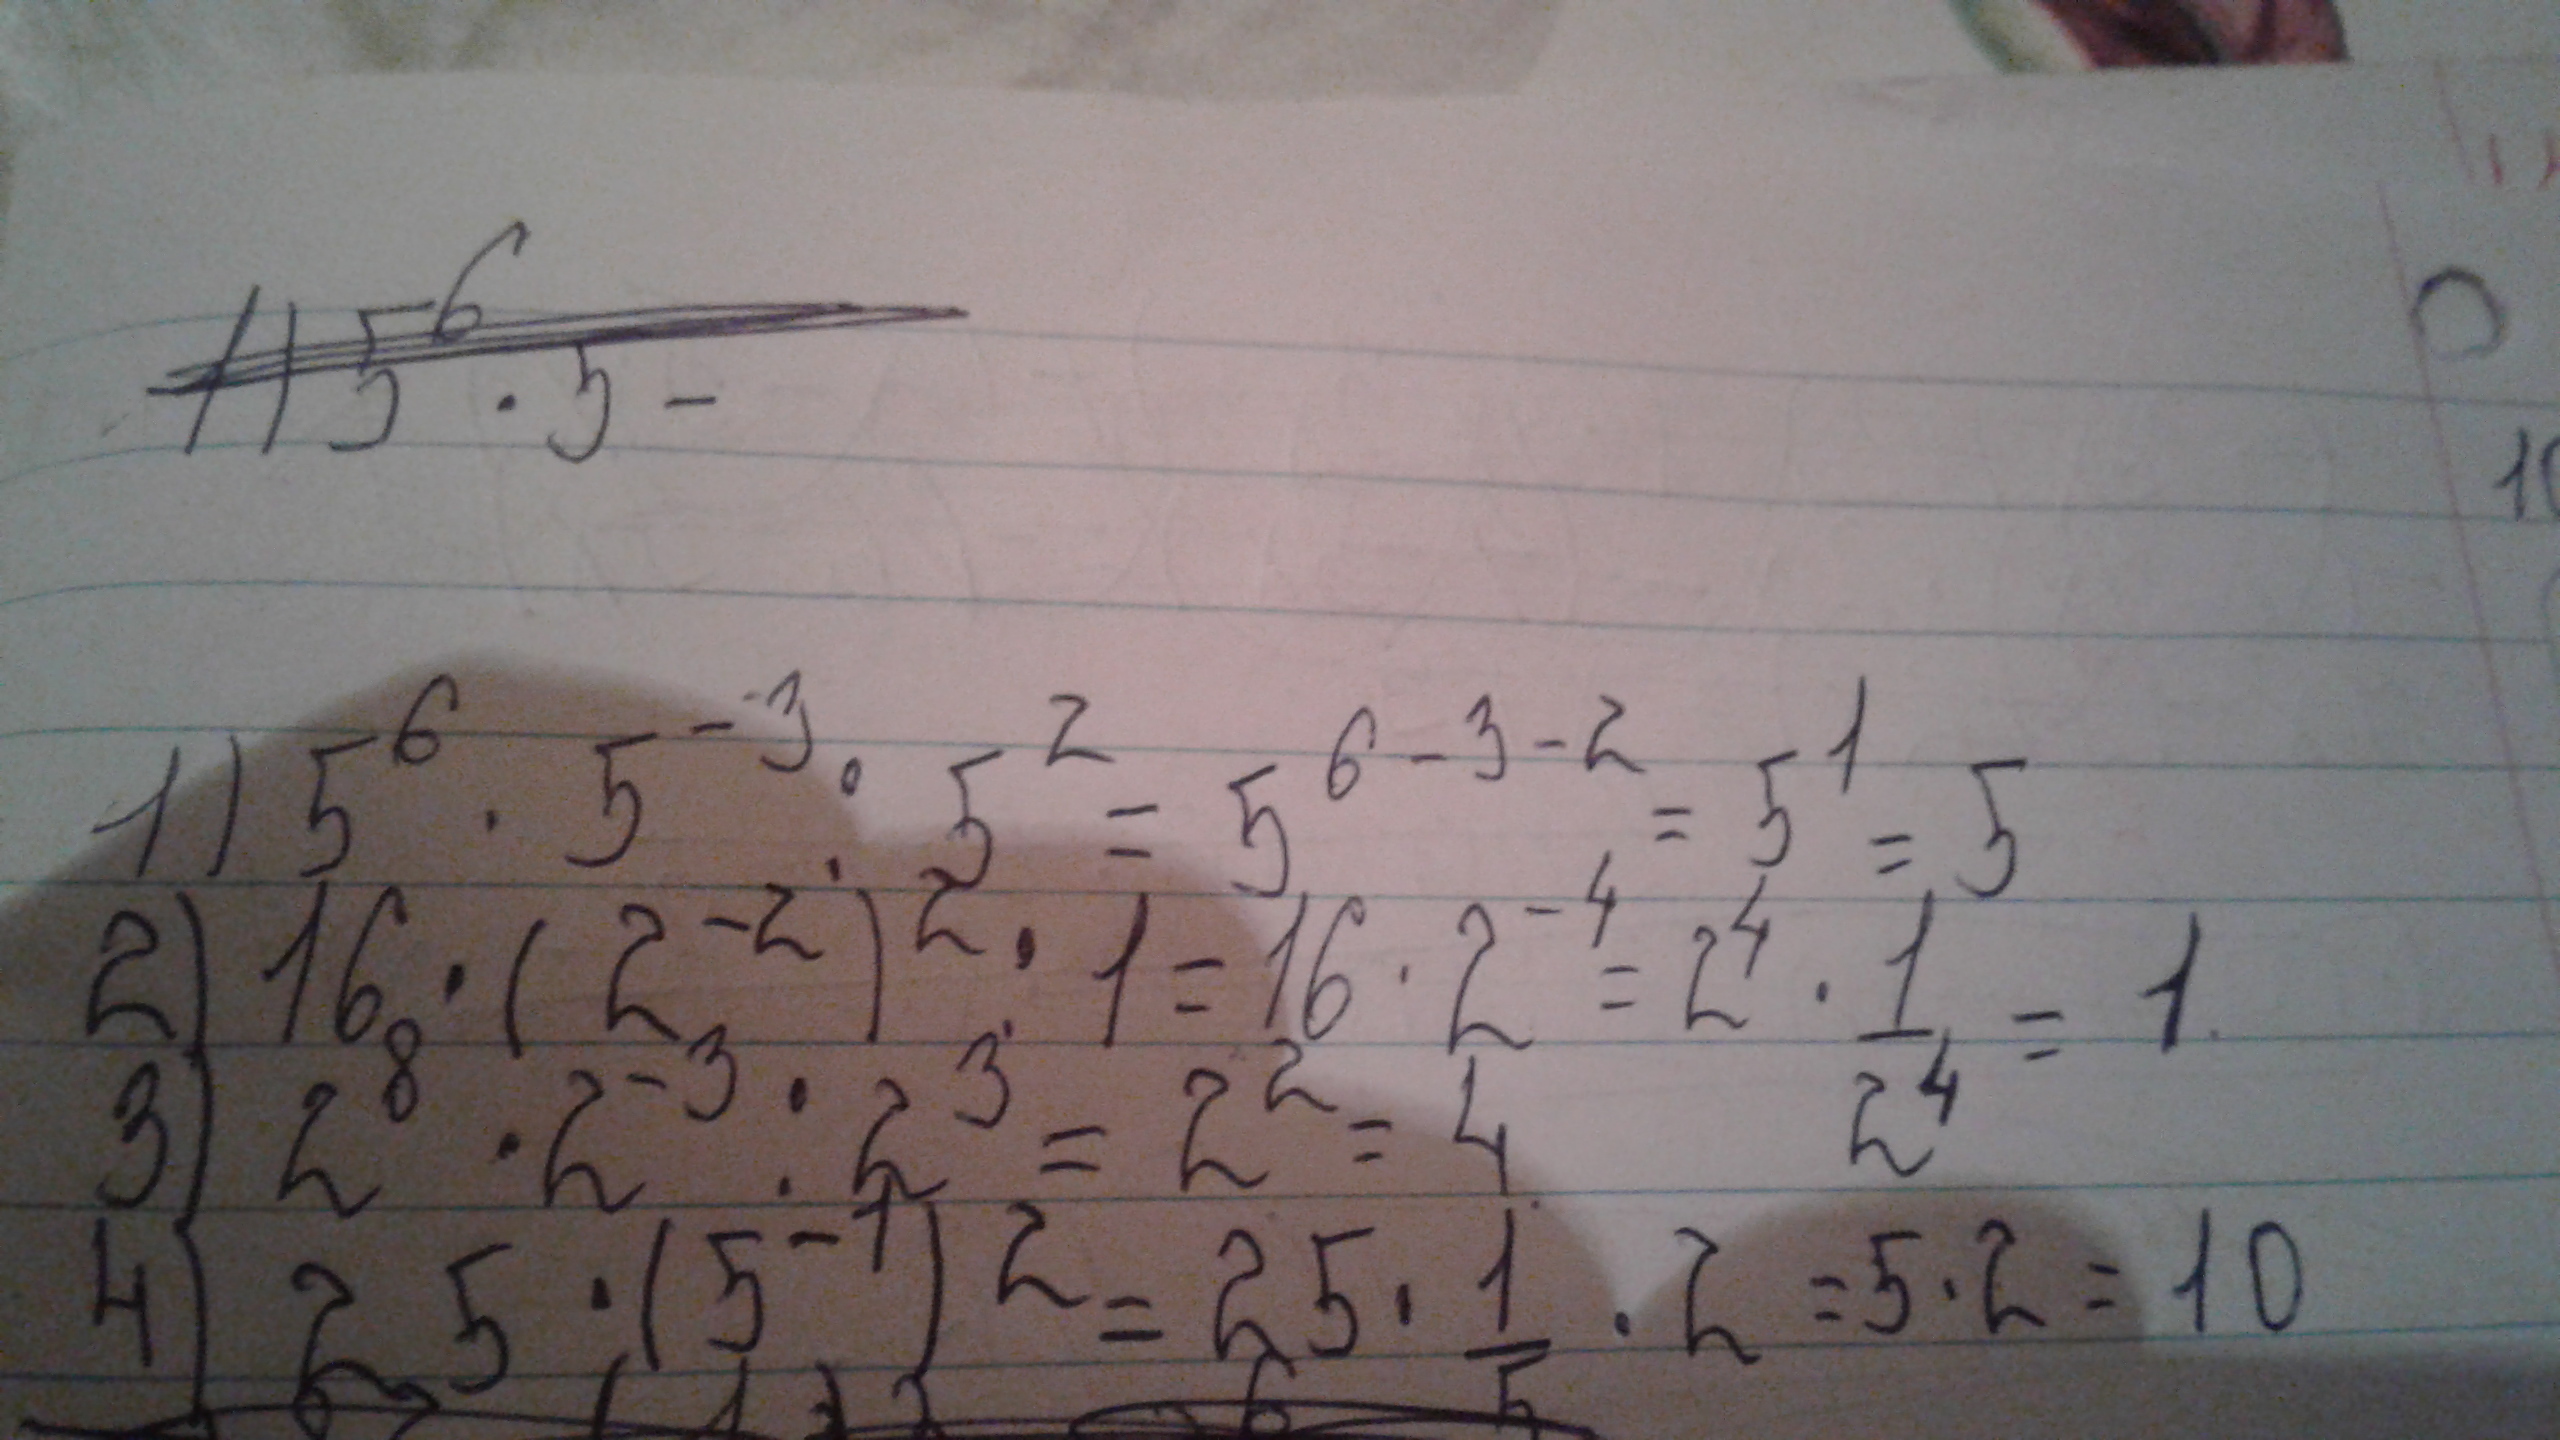 1) 5⁶ · 5 -
1) 5⁶ · 5⁻³ : 5² = 5⁶⁻³⁻² = 5¹ = 5
2) 16 · (2⁻²)² · 1 = 16 · 2⁻⁴ = 2⁴ · 1/2⁴ = 1
3) 2⁸ · 2⁻³ : 2³ = 2² = 4
4) 25 · (5⁻¹)² = 25 · 1/5 · 2 = 5 · 2 = 10
10